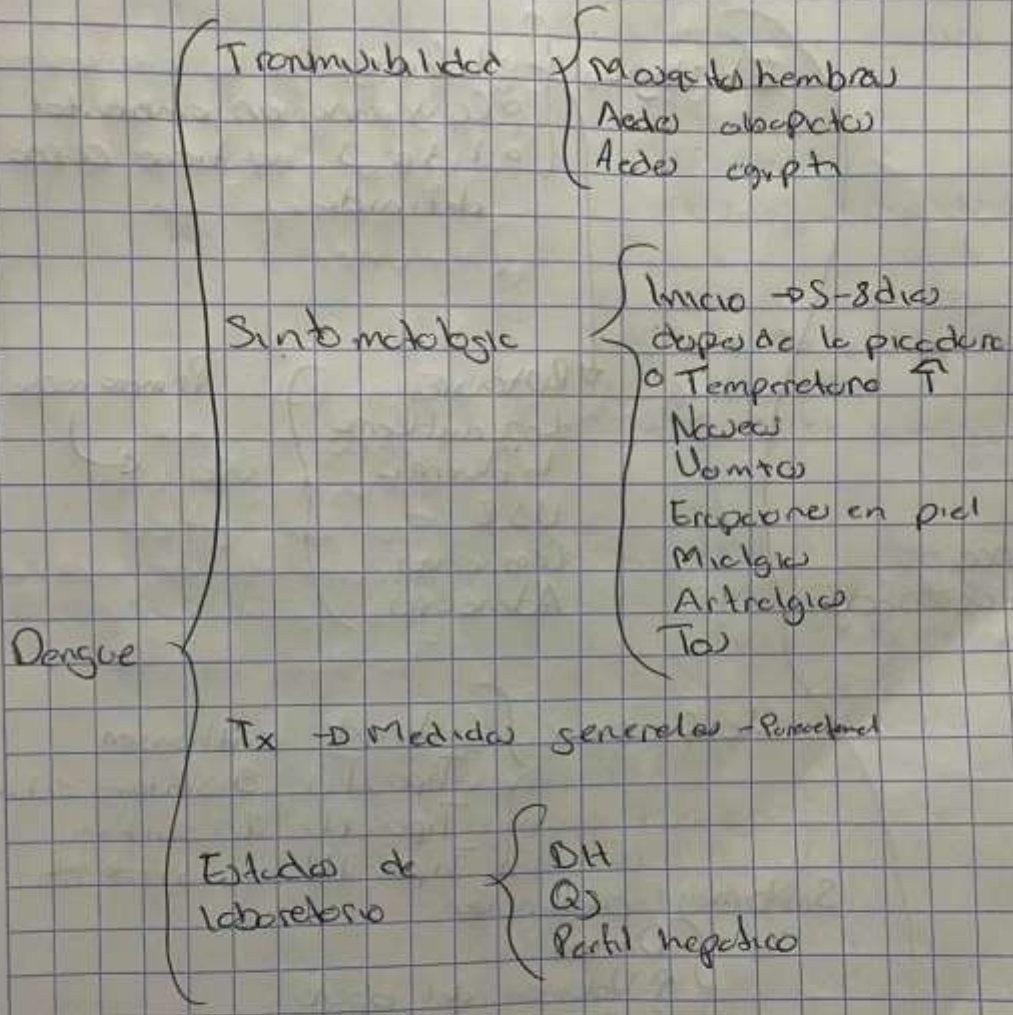 Dengue
Transmisibilidad
Mosquitos hembras
Aedes albopictus
Aedes egypti
Sintomatologia
Inicio → 5-8 dias
despes de la picadura
Temperatura ↑
Nauseas
Vomitos
Erupciones en piel
Mialgias
Artralgias
Tos
Tx → Medidas generales - Paracetamol
Estudios de
laboratorio
BH
QS
Perfil hepatico